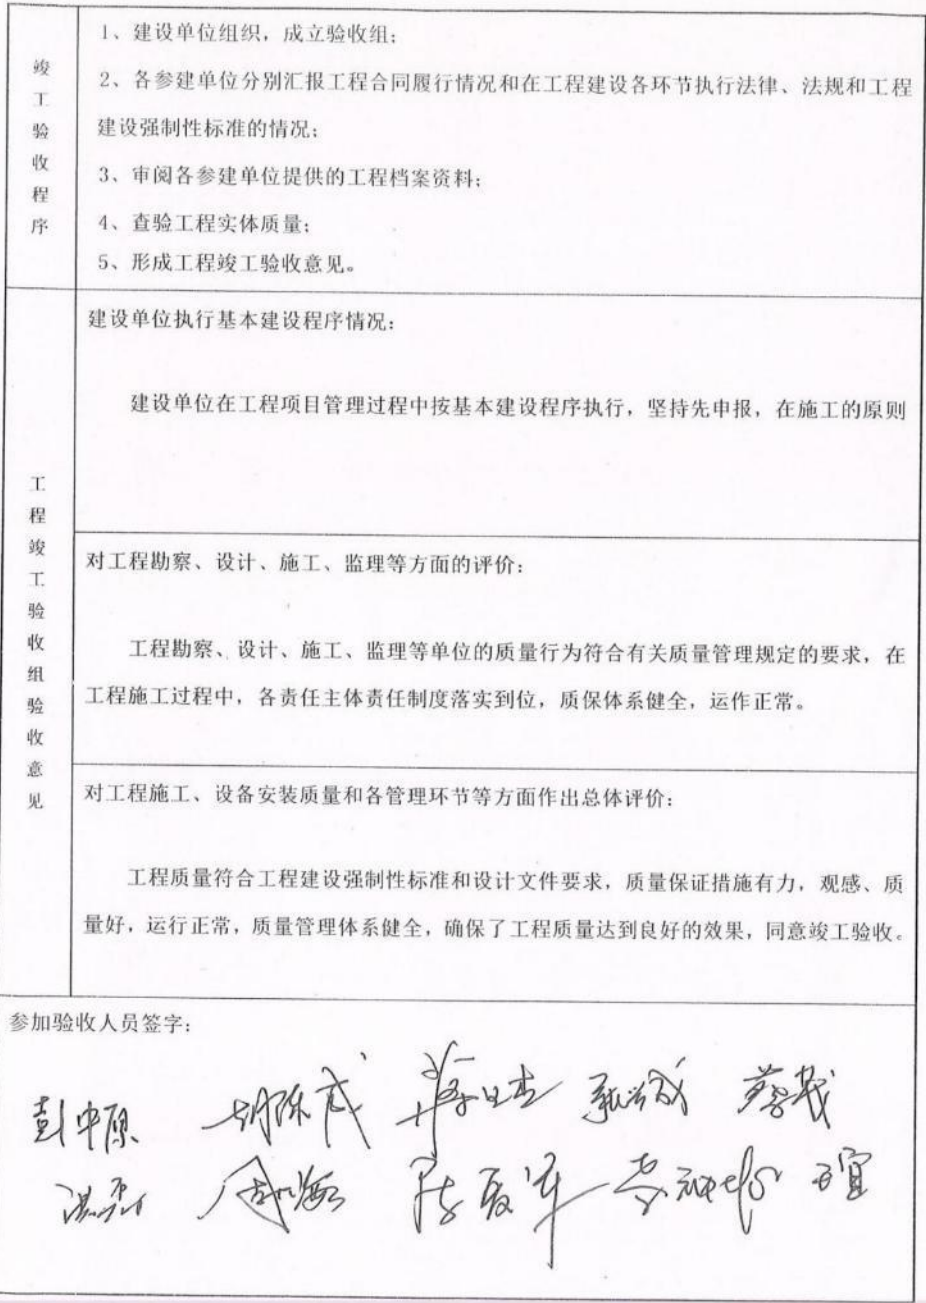 竣工验收程序
1、建设单位组织，成立验收组；
2、各参建单位分别汇报工程合同履行情况和在工程建设各环节执行法律、法规和工程
建设强制性标准的情况；
3、审阅各参建单位提供的工程档案资料；
4、查验工程实体质量；
5、形成工程竣工验收意见。
工程竣工验收组验收意见
建设单位执行基本建设程序情况：
建设单位在工程项目管理过程中按基本建设程序执行，坚持先申报，在施工的原则
对工程勘察、设计、施工、监理等方面的评价：
工程勘察、设计、施工、监理等单位的质量行为符合有关质量管理规定的要求，在
工程施工过程中，各责任主体责任制度落实到位，质保体系健全，运作正常。
对工程施工、设备安装质量和各管理环节等方面作出总体评价：
工程质量符合工程建设强制性标准和设计文件要求，质量保证措施有力，观感、质
量好，运行正常，质量管理体系健全，确保了工程质量达到良好的效果，同意竣工验收。
参加验收人员签字：
彭中原